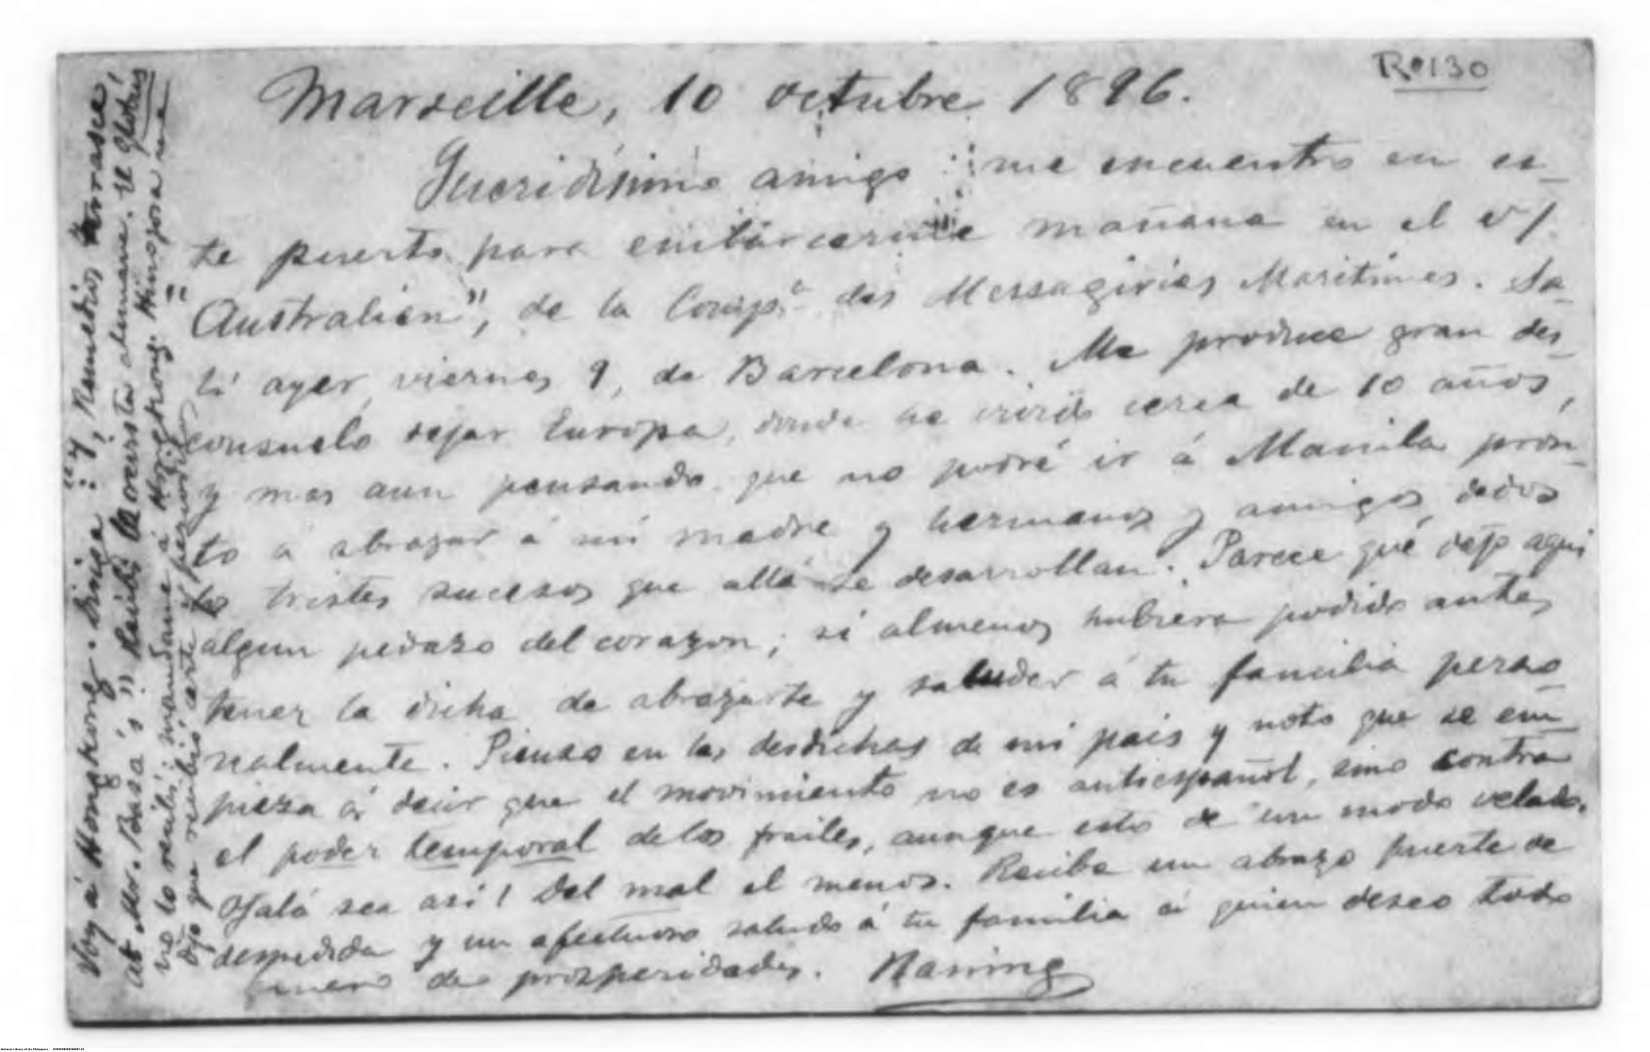 Rº130
Marseille, 10 octubre 1896.
Queridísimo amigo: me encuentro en es-
te puerto para embarcarme mañana en el v/.
"Australien", de la Compª des Messageries Maritimes. Sa-
lí ayer, viernes 9, de Barcelona. Me produce gran des-
consuelo dejar Europa, donde he vivido cerca de 10 años,
y mas aun pensando que no podré ir á Manila pron-
to á abrazar á mi madre y hermanos y amigos, dados
los tristes sucesos que allá se desarrollan. Parece qué dejo aquí
algun pedazo del corazon; si almenos hubiera podido antes
tener la dicha de abrazarte y saludar á tu familia perso-
nalmente. Pienso en las desdichas de mi pais y noto que se em-
pieza á decir que el movimiento no es antiespañol, sino contra
el poder temporal de los frailes, aunque esto de un modo velado.
Ojalá sea así! Del mal el menos. Recibe un abrazo fuerte de
despedida y un afectuoso saludo á tu familia á quien deseo todo
género de prosperidades. Naning
Voy á Hongkong. Dirija: "7, Remedios Terrasce,
at Mr. Basa's" Recibí la revista alemana. Si
no lo recibí; mandame á Hongkong.
Dijo que recibió carte